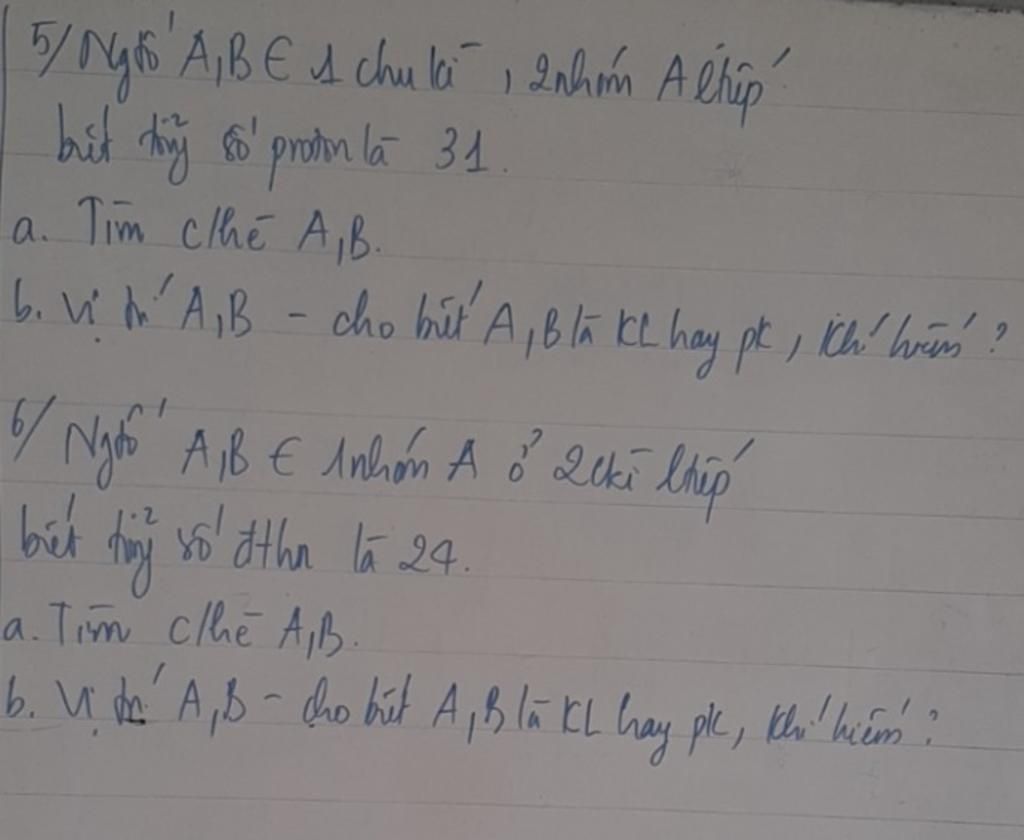 5/ Ngtố A,B ∈ 1 chu kì, 2 nhóm A lhiếp
biết tổng số proton là 31.
a. Tìm c/hē A,B.
b. Vị trí A,B - cho biết A,B là KL hay pk, khí hiếm?
6/ Ngtố A,B ∈ 1 nhóm A ở 2 ckì lhiếp
biết tổng số đthn là 24.
a. Tìm c/hē A,B.
b. Vị trí A,B - cho biết A,B là KL hay pk, khí hiếm?